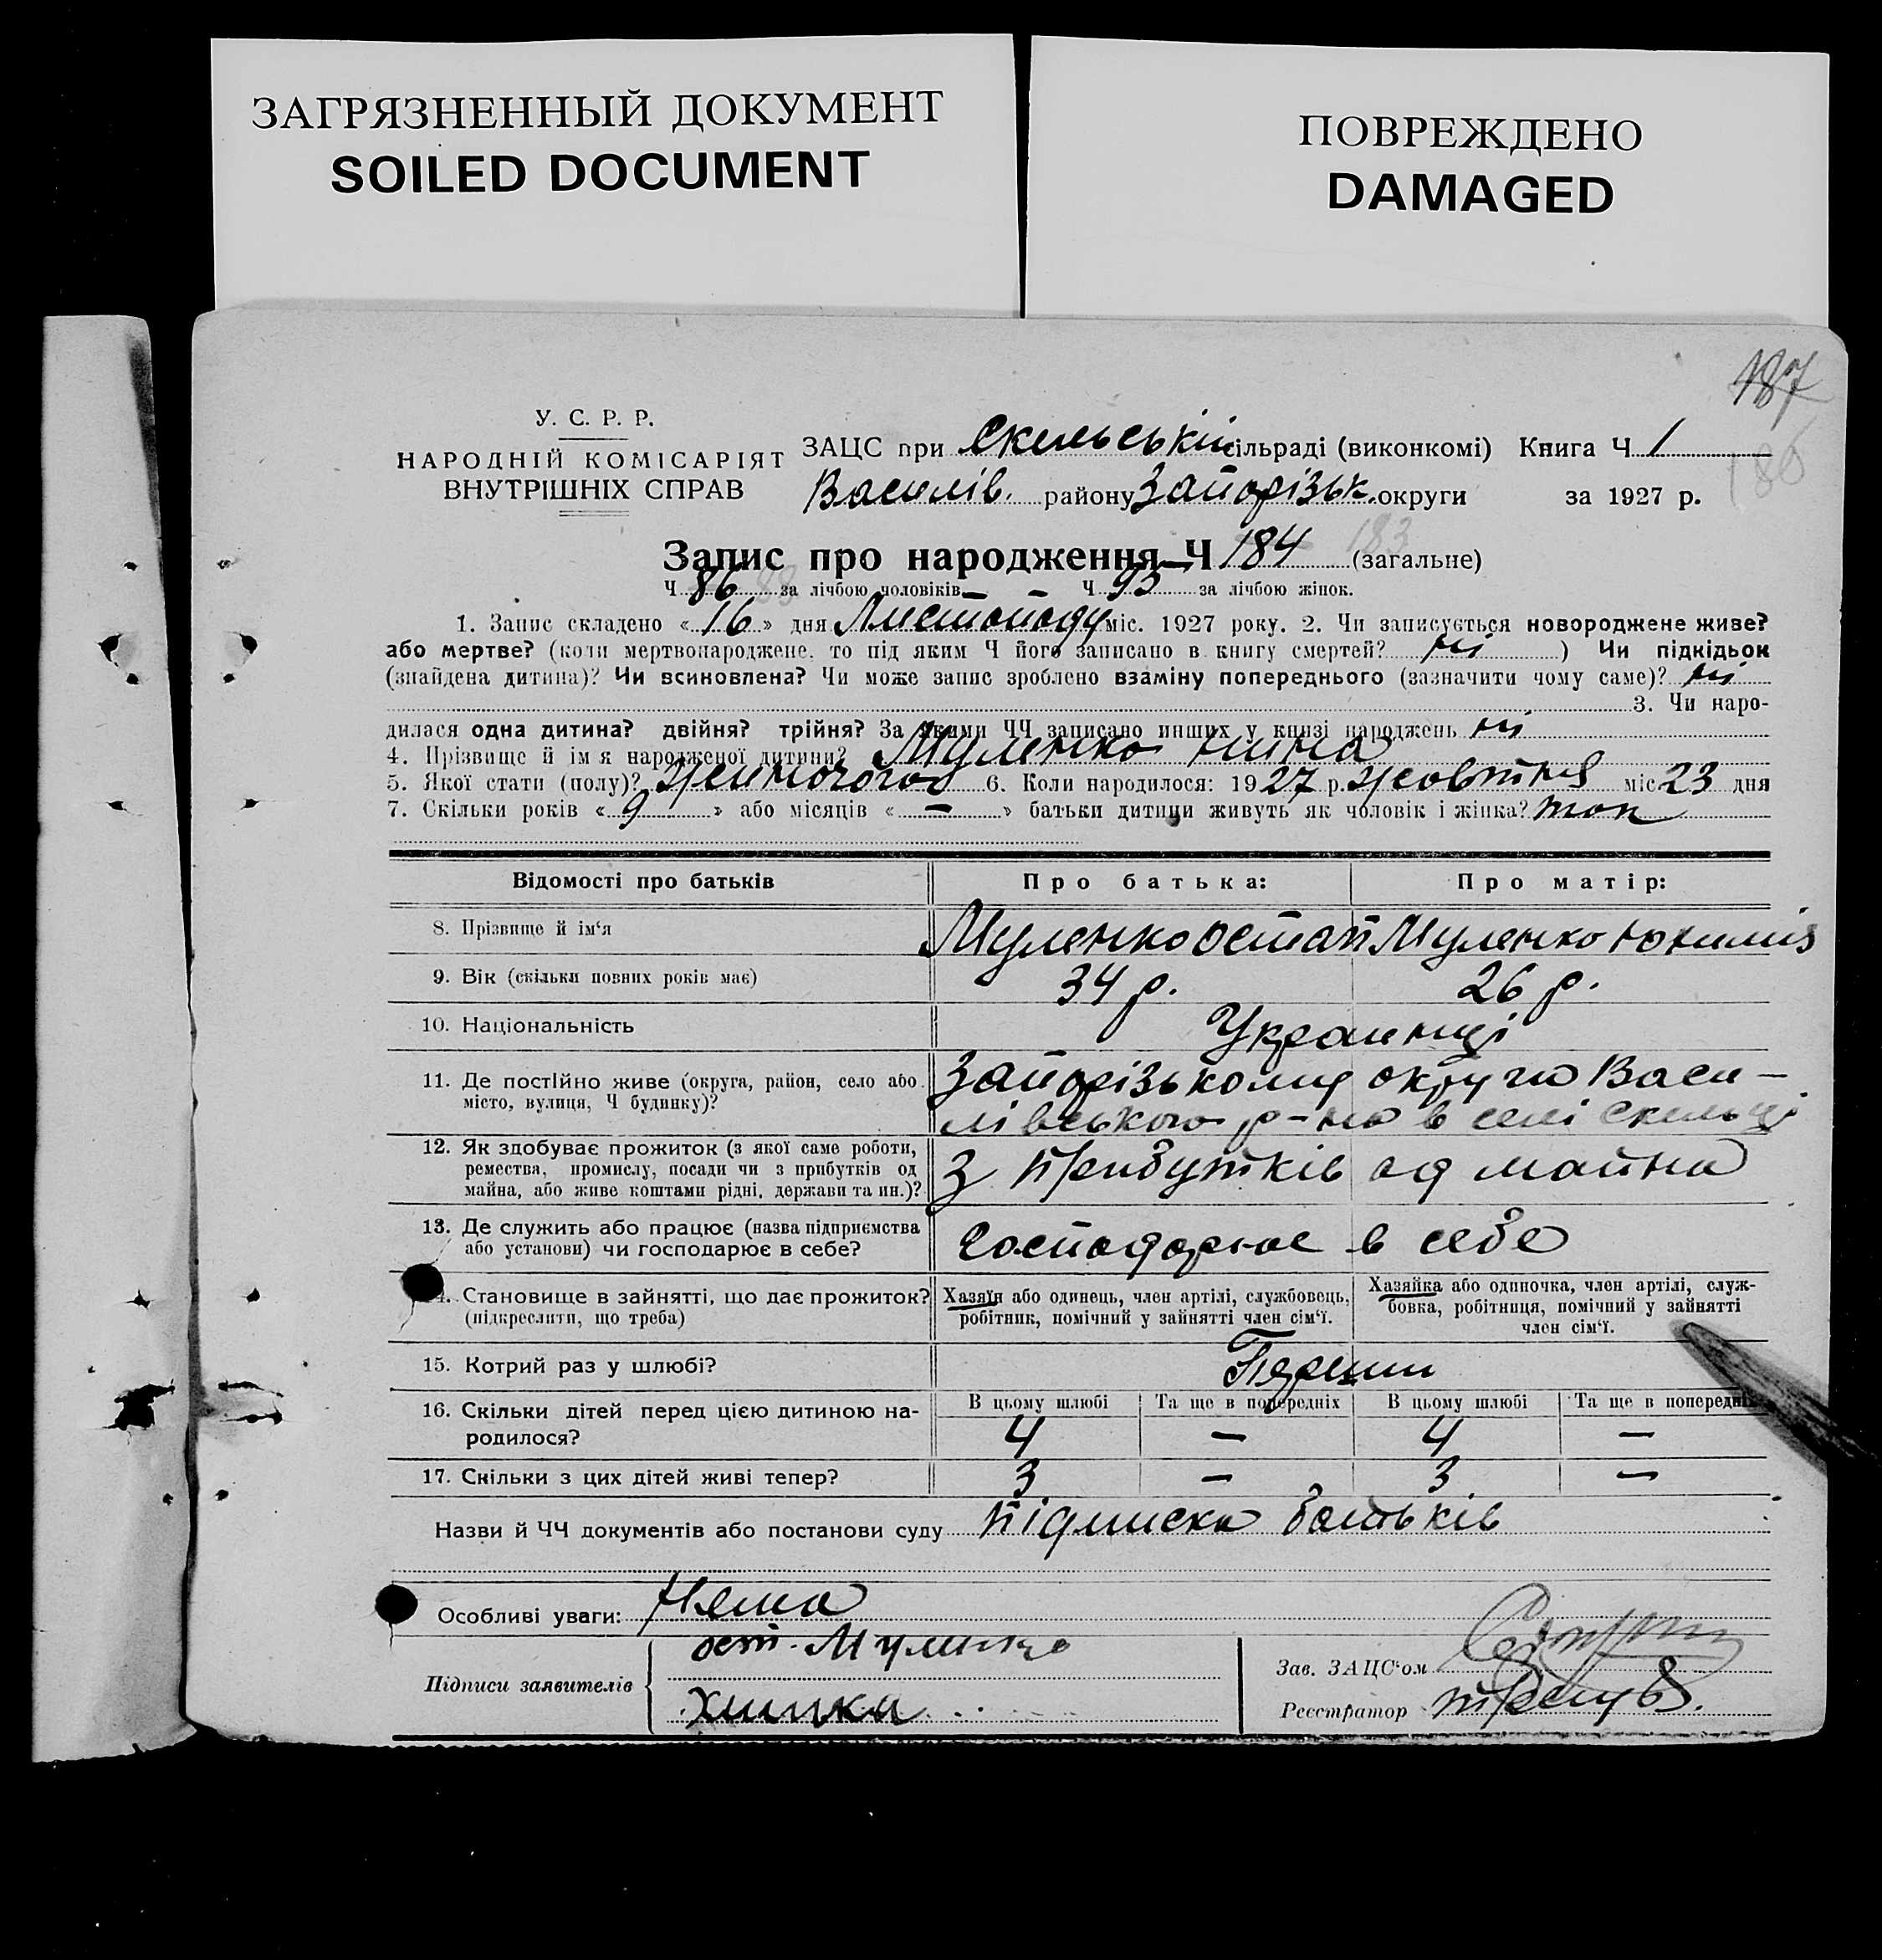 ЗАГРЯЗНЕННЫЙ ДОКУМЕНТ
SOILED DOCUMENT
ПОВРЕЖДЕНО
DAMAGED
187
186
У. С. Р. Р.
НАРОДНІЙ КОМІСАРІЯТ
ВНУТРІШНІХ СПРАВ
ЗАЦС при Скельській сільраді (виконкомі) Книга Ч 1
Василів. району Запорізьк. округи за 1927 р.
Запис про народження Ч 184 183 (загальне)
Ч 86 88 за лічбою чоловіків Ч 95 за лічбою жінок.
1. Запис складено « 16 » дня Листопаду міс. 1927 року. 2. Чи записується новороджене живе?
або мертве? (коли мертвонароджене, то під яким Ч його записано в книгу смертей? ні ) Чи підкідьок
(знайдена дитина)? Чи всиновлена? Чи може запис зроблено взаміну попереднього (зазначити чому саме)? ні
3. Чи наро-
дилася одна дитина? двійня? трійня? За якими ЧЧ записано инших у книзі народжень ні
4. Прізвище й ім'я народженої дитини? Муленко Нина
5. Якої стати (полу)? жиночого 6. Коли народилося: 1927 р. жовтня міс 23 дня
7. Скільки років « 9 » або місяців « — » батьки дитини живуть як чоловік і жінка? топ
Відомості про батьків
Про батька:
Про матір:
8. Прізвище й ім'я
Муленко Остап
Муленко Юхимія
9. Вік (скільки повних років має)
34 р.
26 р.
10. Національність
Украинці
11. Де постійно живе (округа, район, село або
місто, вулиця, Ч будинку)?
Запорізькому округа Васи-
лівського р-на в селі Скельці
12. Як здобуває прожиток (з якої саме роботи,
ремества, промислу, посади чи з прибутків од
майна, або живе коштами рідні, держави та ин.)?
З прибутків од майна
13. Де служить або працює (назва підприємства
або установи) чи господарює в себе?
Господарює в себе
14. Становище в зайнятті, що дає прожиток?
(підкреслити, що треба)
Хазяїн або одинець, член артілі, службовець,
робітник, помічний у зайнятті член сім'ї.
Хазяйка або одиночка, член артілі, служ-
бовка, робітниця, помічний у зайнятті
член сім'ї.
15. Котрий раз у шлюбі?
Перший
16. Скільки дітей перед цією дитиною на-
родилося?
В цьому шлюбі Та ще в попередніх В цьому шлюбі Та ще в попередніх
4 — 4 —
17. Скільки з цих дітей живі тепер?
3 — 3 —
Назви й ЧЧ документів або постанови суду підписка батьків
Особливі уваги: Нема
Підписи заявителів
ост. Муленко
Зав. ЗАЦС'ом
Реєстратор